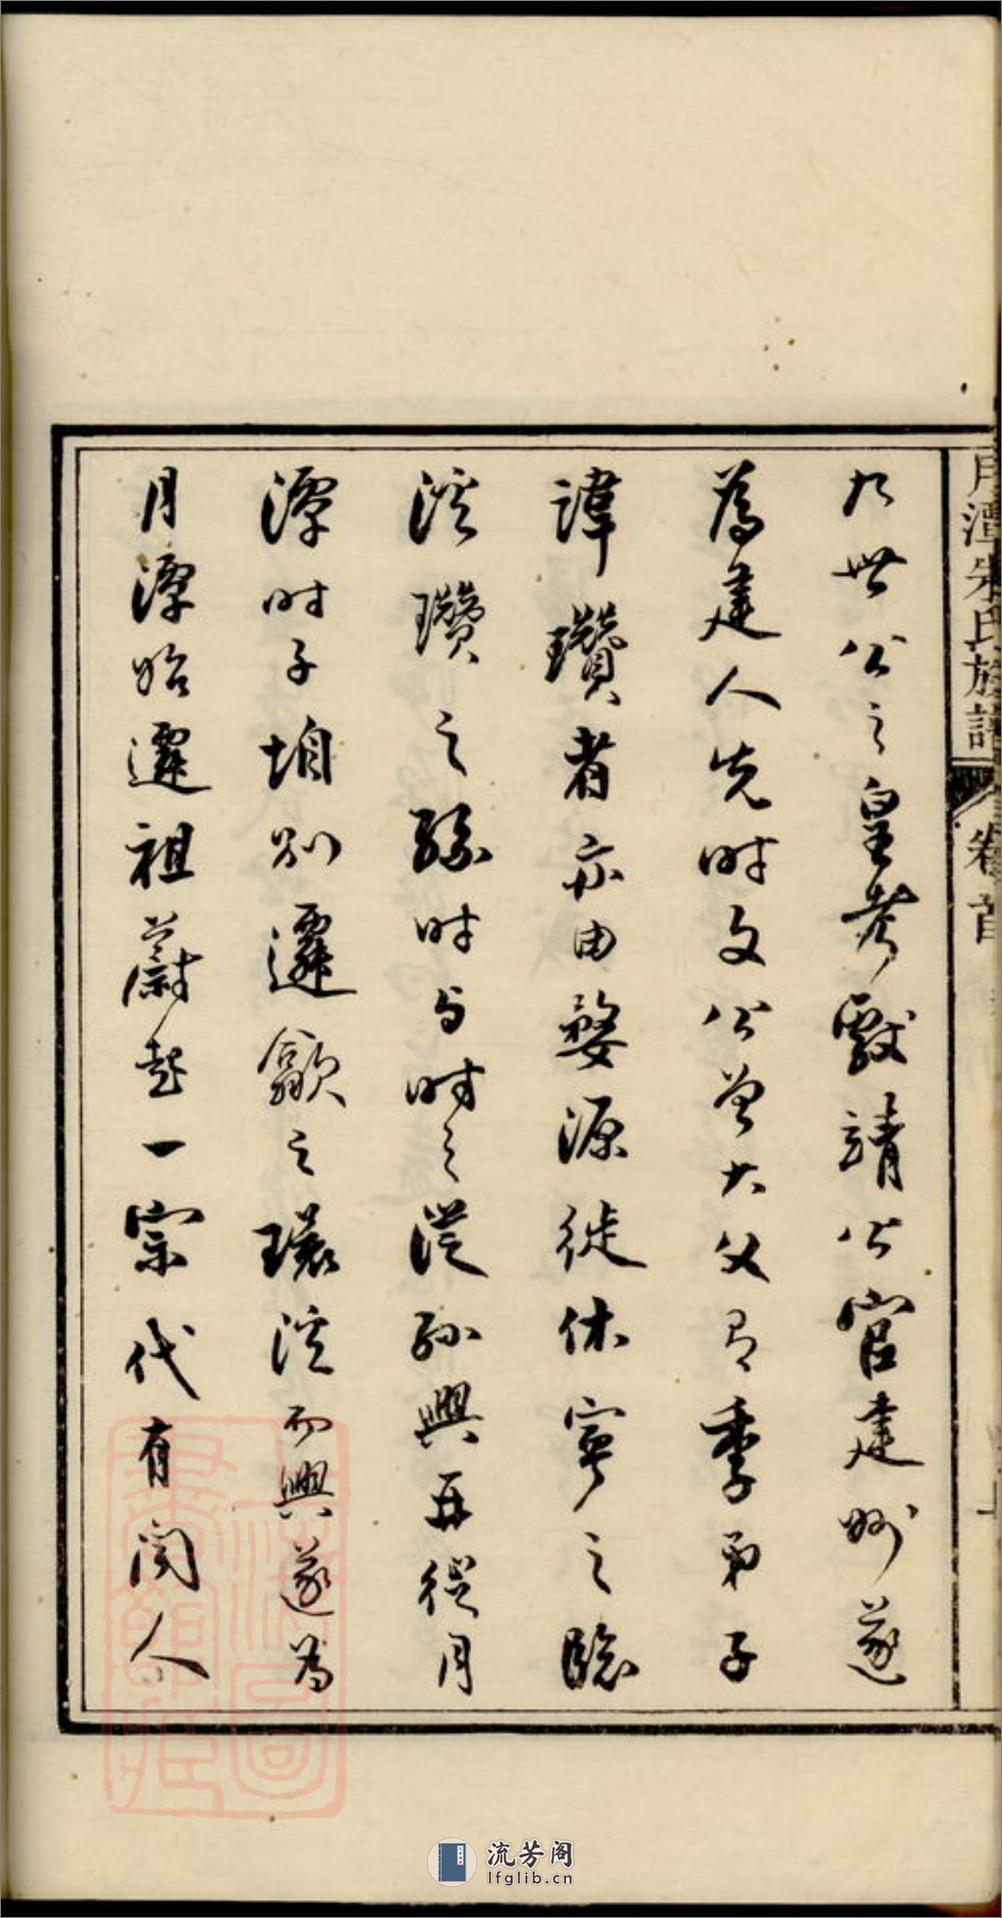 月潭朱氏族譜 卷首
九世公之皇考獻靖公官建州遂
為建人先時文公曾大父有季弟子
諱瓚者亦由婺源徙休寧之臨
溪瓚之孫時与時之從孫興再從月
潭時子垍別遷歙之環溪而興遂為
月潭始遷祖蔚起一宗代有聞人
上海圖書館藏
流芳阁
lfglib.cn